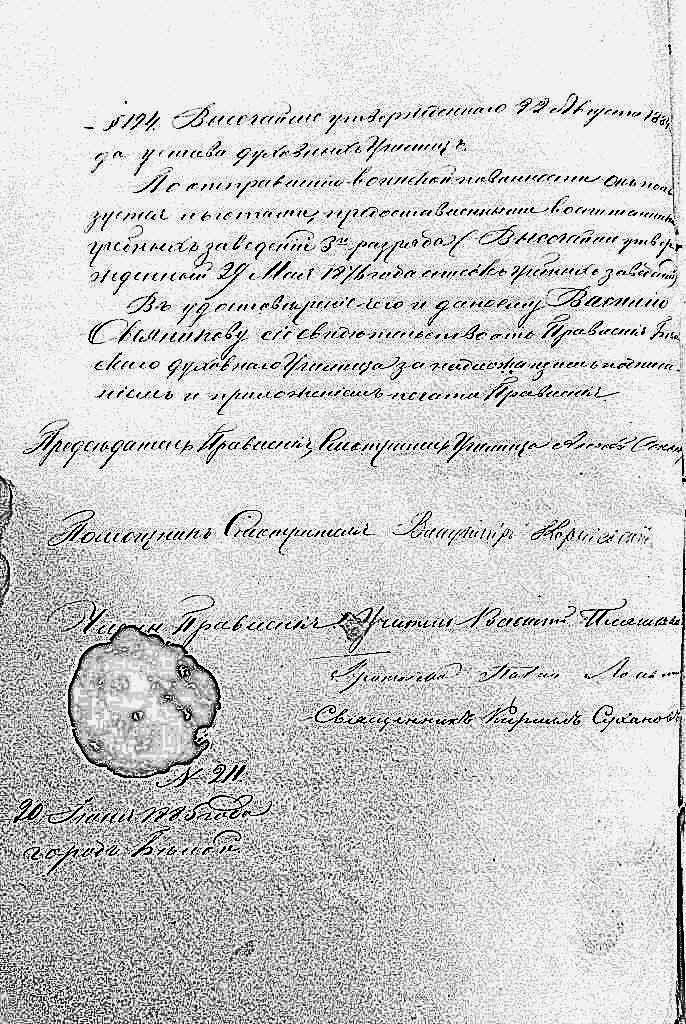 – § 124. Высочайше утвержденнаго 22 Августа 1884
да устава духовныхъ Училищъ.
По отправленію воинской повинности онъ поль
зуется льготами, предоставленными воспитанникамъ
учебныхъ заведеній 3го разряда (Высочайше утвер
жденный 29 Мая 1876 года списокъ учебныхъ заведеній)
Въ удостовѣреніе чего и дано ему Василію
сіе свидѣтельство отъ Правленія
скаго духовнаго Училища за надлежащимъ подписа
ніемъ и приложеніемъ печати Правленія.
Предсѣдатель Правленія, Смотритель Училища
Помощникъ Смотрителя Владиміръ
Членъ Правленія Учитель
Павелъ
Священникъ Кириллъ Сухановъ
№ 211
20 Іюня 1885 года
городъ Бѣлый